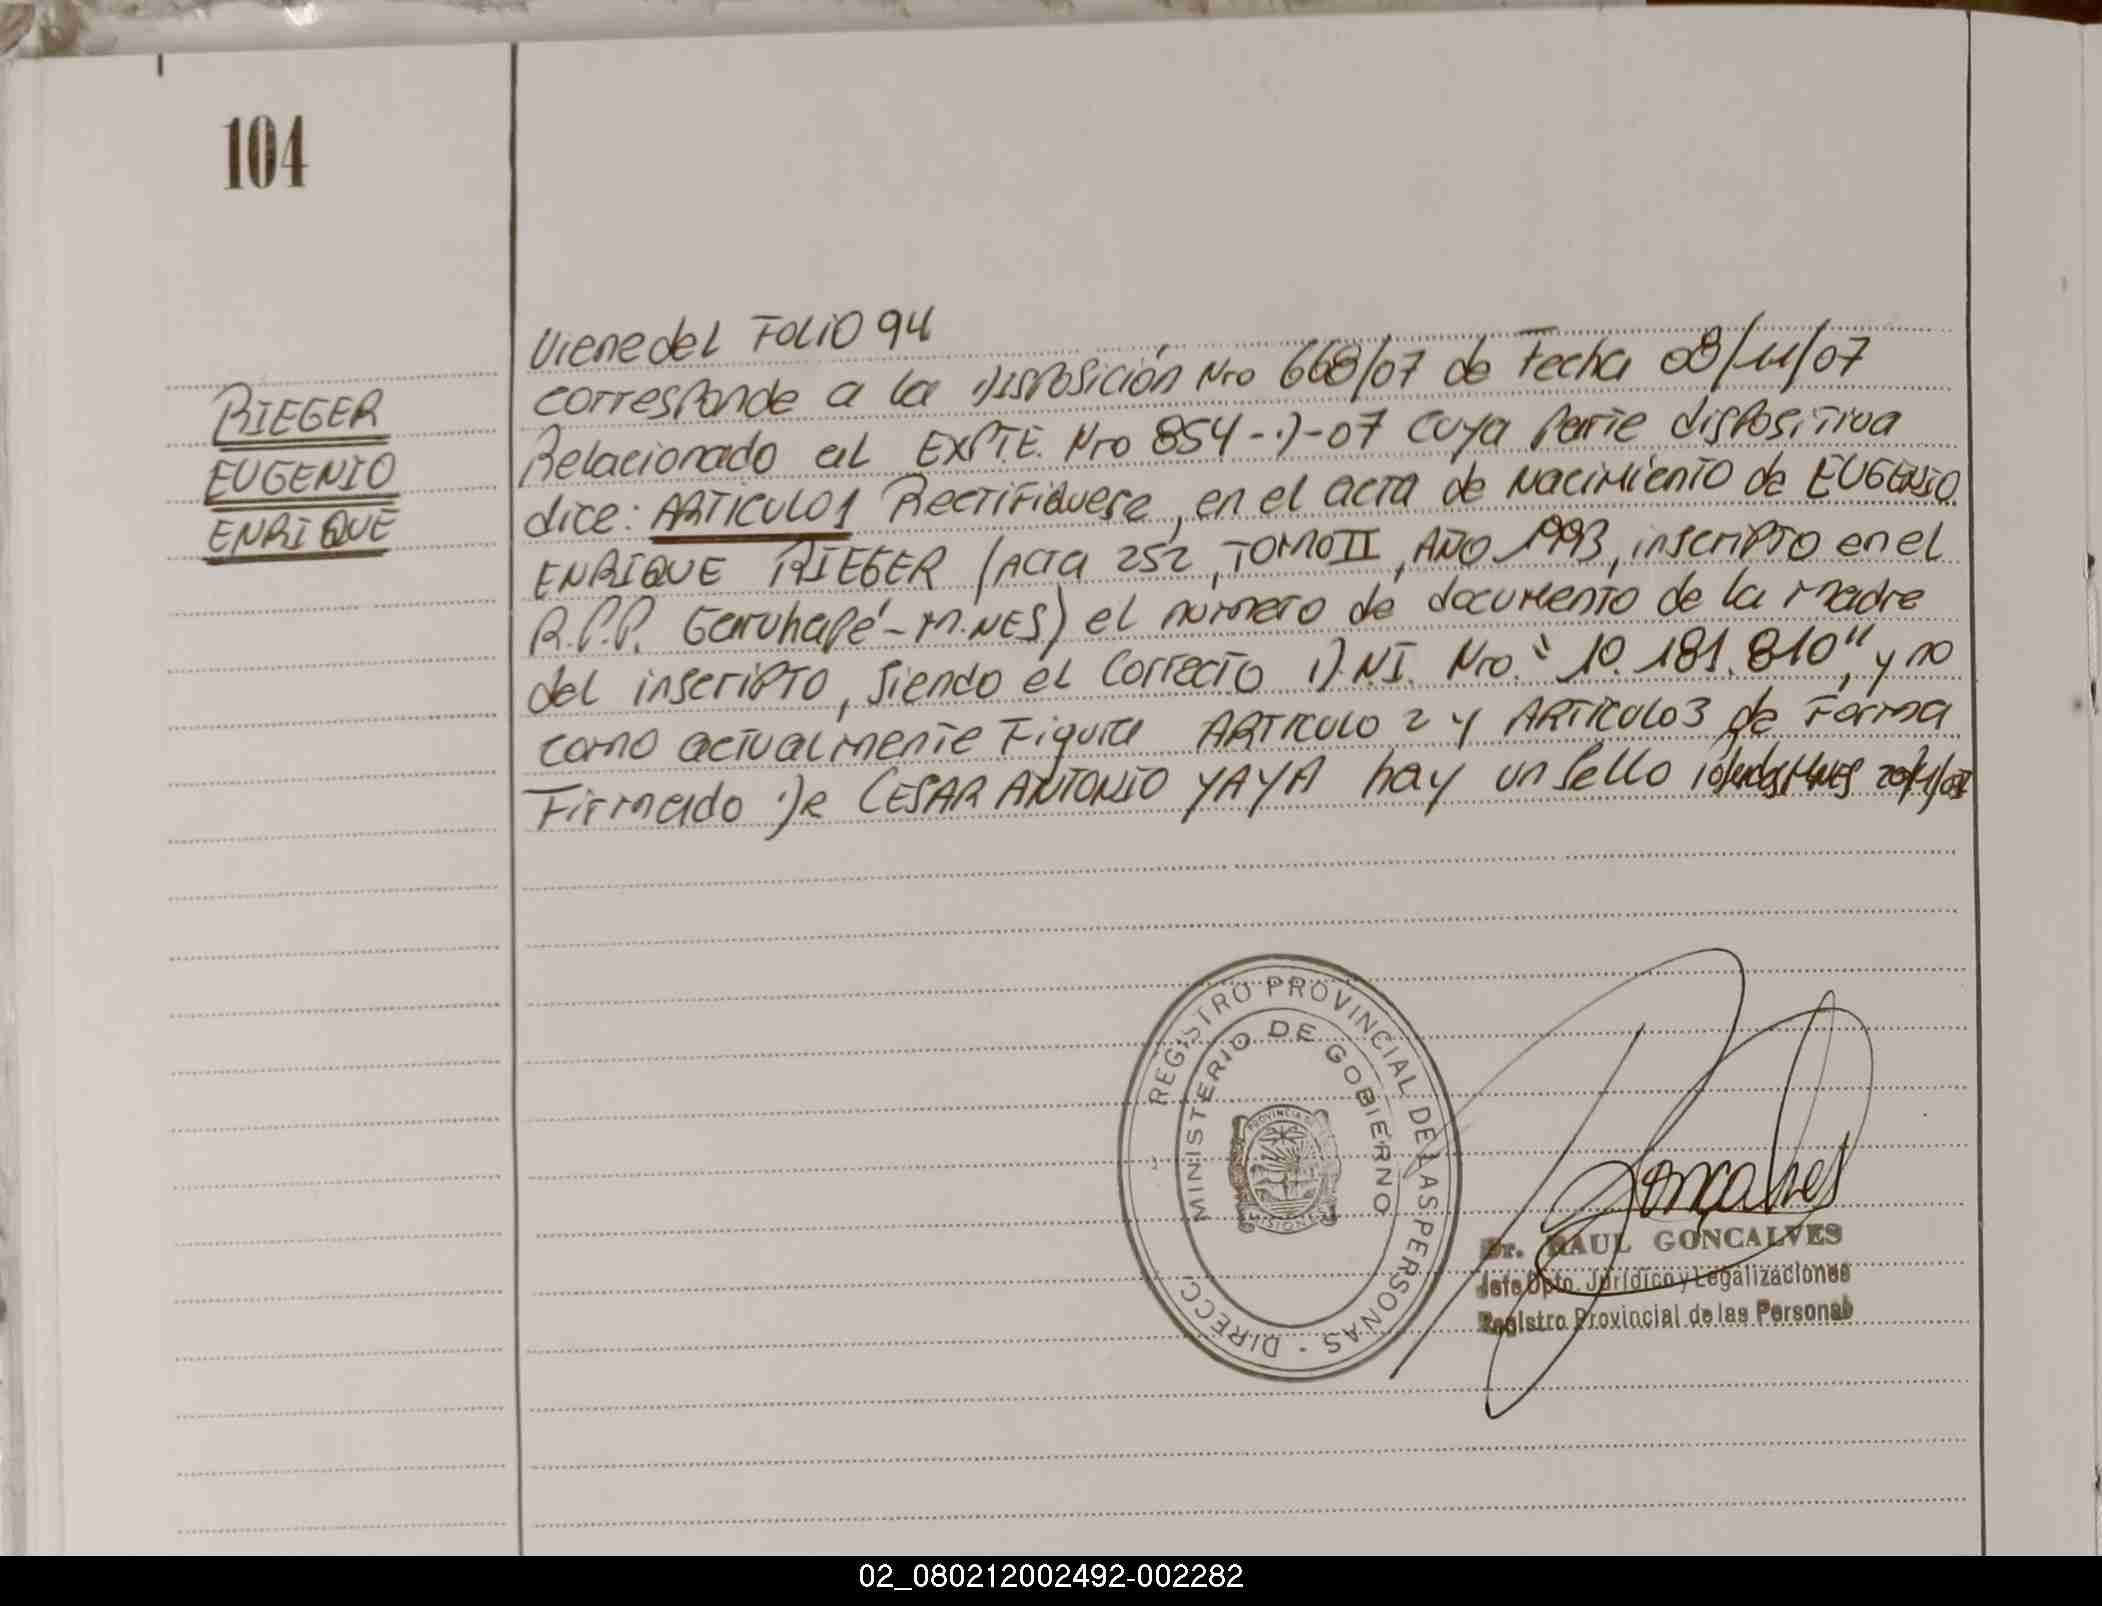 104
RIEGER
EUGENIO
ENRIQUE
Viene del FOLIO 94
corresponde a la Disposición Nro 668/07 de Fecha 08/11/07
Relacionado al EXPTE. Nro 854-D-07 cuya parte dispositiva
dice: ARTICULO 1 Rectifiquese, en el acta de Nacimiento de EUGENIO
ENRIQUE RIEGER (Acta 252, TOMO II, AÑO 1993, inscripto en el
R.P.P. Garuhapé-M.NES) el numero de documento de la madre
del inscripto, siendo el correcto D.N.I. Nro. "10.181.810", y no
como actualmente Figura ARTICULO 2 y ARTICULO 3 de Forma
Firmado Dr CESAR ANTONIO YAYA hay un sello
REGISTRO PROVINCIAL DE LAS PERSONAS - DIRECC
MINISTERIO DE GOBIERNO
PROVINCIA
MISIONES
Goncalves
Dr. RAUL GONCALVES
Jefe Dpto. Jurídico y Legalizaciones
Registro Provincial de las Personas
02_080212002492-002282